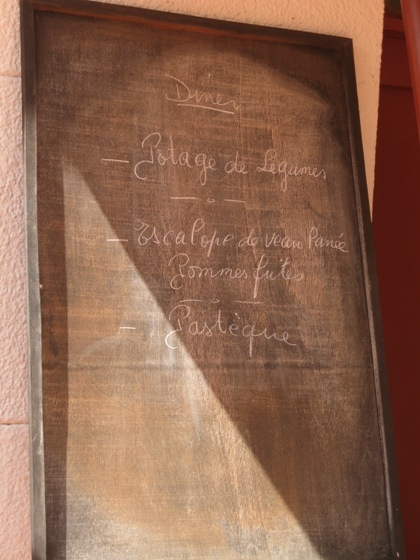 Dîner
– Potage de Légumes
– o –
– Escalope de veau Panée
Pommes frites
– o –
– Pastèque